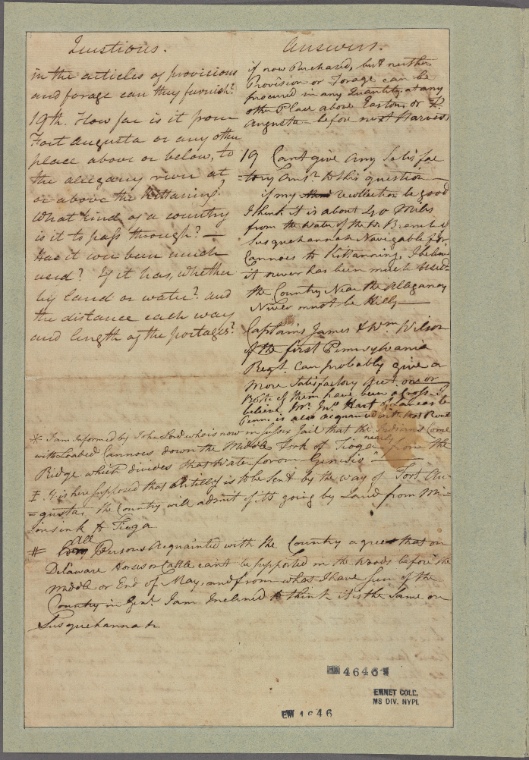 Questions.
in the articles of provicions
and forage can they furnish?
19th. How far is it from
Fort Augusta or any other
place above or below, to
the allegany river at
or above the Kittanings
What kind of a country
is it to pass through?
Has it ever been much
used? If it has, whether
by land or water? and
the distance each way
and length of the portages?
Answers.
if now Purchased, but neither
Provision or Forage can be
procured in any Quantity at any
other Place above Easton, or Ft
Augusta before next Harvest
19 Cant give any Satisfac
tory Ansr. to this question
if my recollection be good
I think it is about 40 Miles
from the Water of the W. Branch of
Susquehannah Navigable for
Cannoes to Kittanning, I believe
it never has been much used
the Country Near the Allegany
River must be Hilly
Captains James & Wm. Wilson
of the first Pennsylvania
Regt. can probably give a
more Satisfactory
Both of them have been
believe
is also acquainted with that Rout
* I am informed by John who is now in Jail that the Indians Come
with Loaded Cannoes down the Middle Fork of Tioga from near the
Ridge which divides that Water from
‡ It is here supposed that Artillery is to be Sent by the way of Fort Au-
=gusta, the Country will admit of its going by Land from Wi-
to Tioga
# all Persons Acquainted with the Country agree that on
Delaware Horses or Cattle can't be Supported in the Woods before the
Middle or End of May, and from what I have seen of the
Country in Genl. I am Inclined to think it is the Same on
Susquehanna &
EM 4646
EMMET COLL.
MS DIV. NYPL